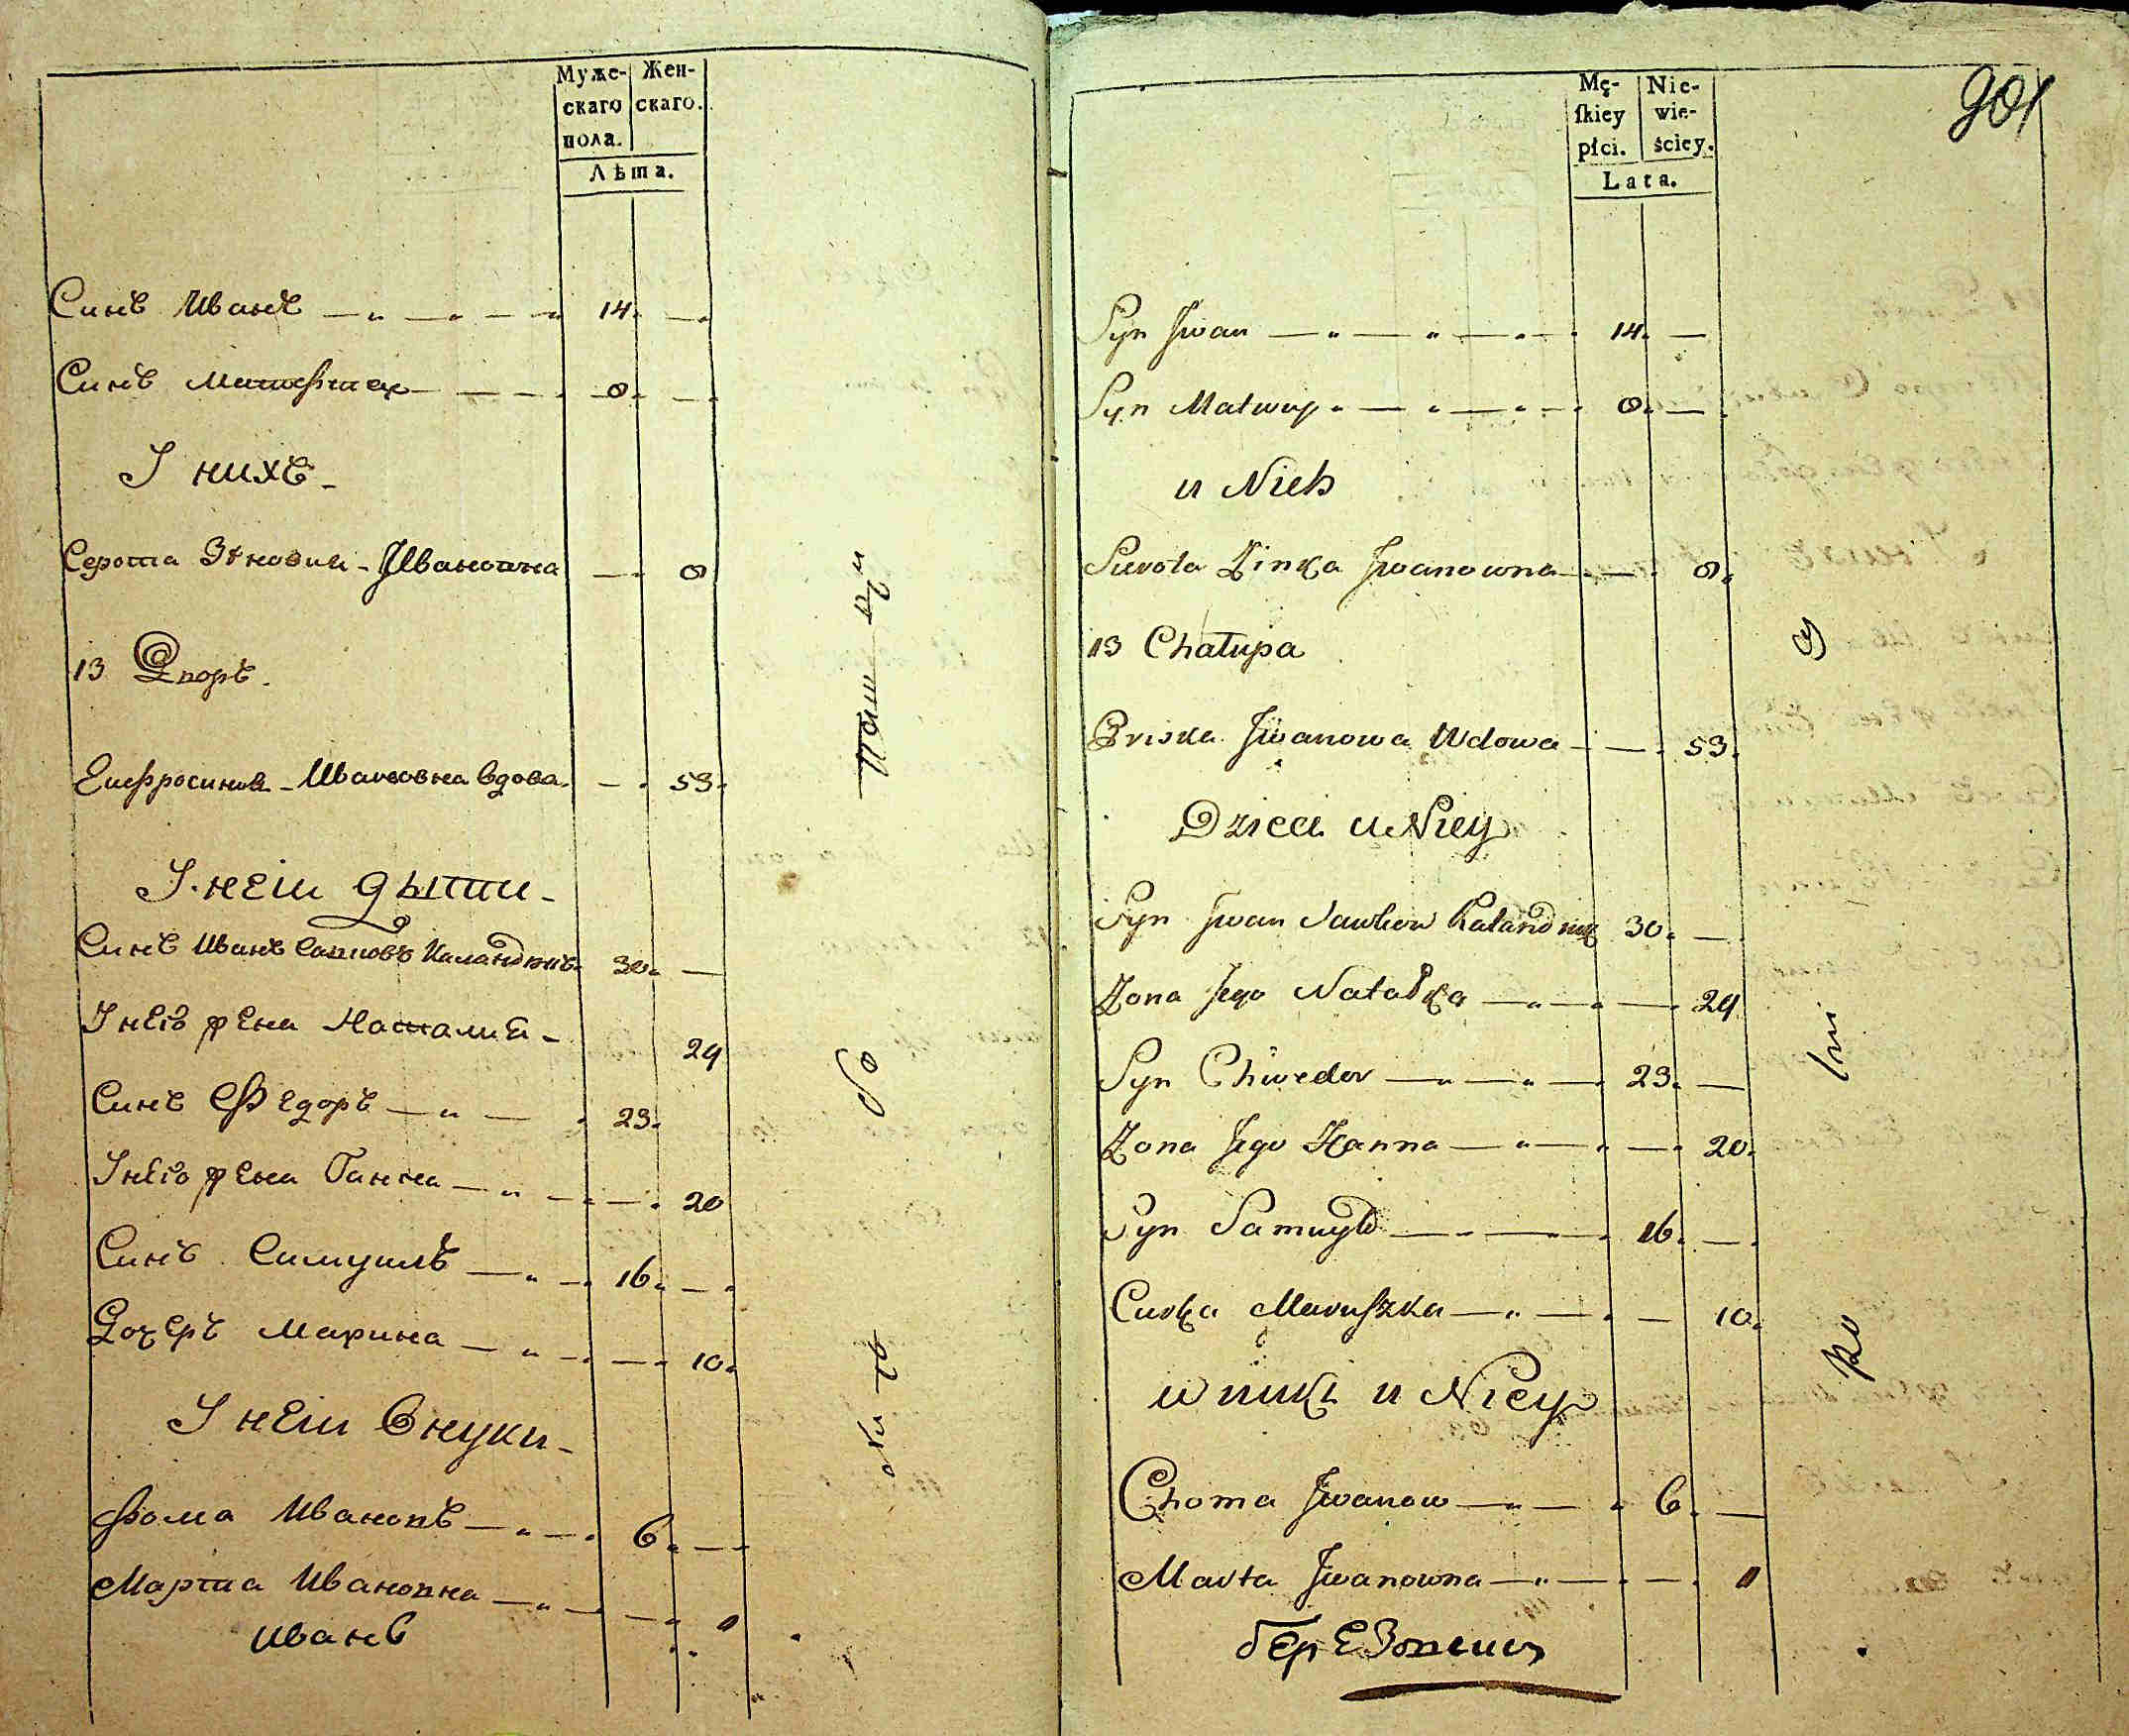 Муже- Жен-
скаго скаго.
пола.
Лѣта.
Синъ Иванъ 14.
Синъ Матфтей 8.
У нихъ
Серота Зѣновия Ивановна 8
13 Дворъ.
Еифросиния Ивановна вдова 53.
У неи дѣти
Синъ Иванъ Савповъ Каландюкъ 30.
У него жена Наталия 24
Синъ Федоръ 23.
У него жена Ганна 20
Синъ Самуилъ 16.
Дочеръ Марина 10.
У неи внуки
Фома Ивановъ 6.
Марта Ивановна 1
Иванъ
901
Mę- Nie-
skiey wie-
płci. ściey.
Lata.
Syn Jwan 14.
Syn Matwiy 8.
u Nich
Sierota Zinka Jwanowna 8.
13 Chałupa
Priska Jwanowa Wdowa 53.
Dzieci u Niey
Syn Jwan Sawkow Kalandiuk 30.
Zona Jego Natalka 24
Syn Chwedor 23.
Zona Jego Hanna 20.
Syn Samuyło 16.
Curka Maruszka 10.
Wnuki u Niey
Choma Jwanow 6.
Marta Jwanowna 1